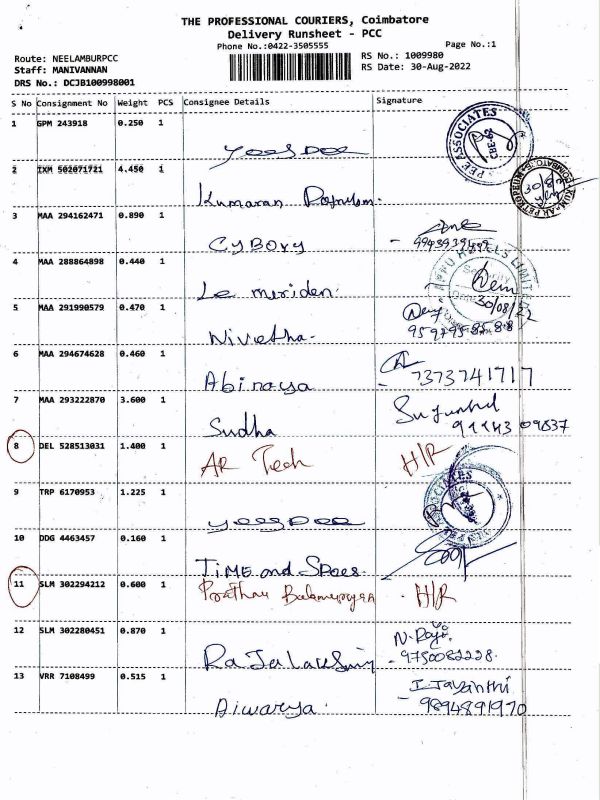 THE PROFESSIONAL COURIERS, Coimbatore
Delivery Runsheet - PCC
Phone No.:0422-3505555
Page No.:1
Route: NEELAMBURPCC
RS No.: 1009980
Staff: MANIVANNAN
RS Date: 30-Aug-2022
DRS No.: DCJB100998001
S No Consignment No Weight PCS Consignee Details Signature
1 GPM 243918 0.250 1
ASSOCIATES
2 IXM 502071721 4.450 1
Kumaran
3 MAA 294162471 0.890 1
CYBORY
4 MAA 288864898 0.440 1
Le meriden.
APPU HOTELS LIMITED
30/08/22
5 MAA 291990579 0.470 1
Nivetha.
9597958588
6 MAA 294674628 0.460 1
Abinaya
7373741717
7 MAA 293222870 3.600 1
Sudha
8 DEL 528513031 1.400 1
AR Tech H/R
9 TRP 6170953 1.225 1
10 DDG 4463457 0.160 1
TIME and
11 SLM 302294212 0.600 1
H/R
12 SLM 302280451 0.870 1
N. Raji.
9750082228.
13 VRR 7108499 0.515 1
Aiwarya.
I. Jayanthi
9894891970